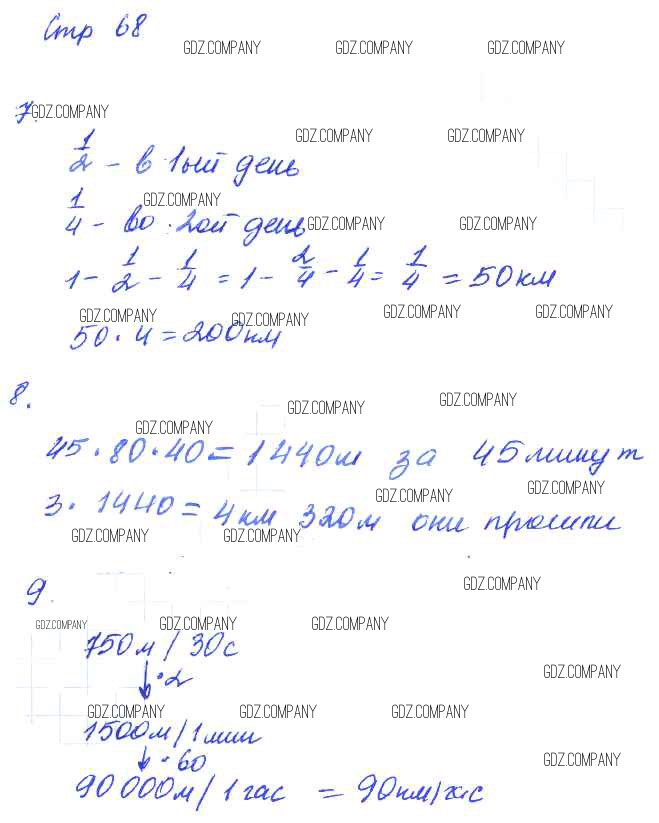 Стр 68
GDZ.COMPANY GDZ.COMPANY GDZ.COMPANY
7. GDZ.COMPANY
GDZ.COMPANY GDZ.COMPANY
1/2 - в 1ый день
GDZ.COMPANY
1/4 - во 2ой день
GDZ.COMPANY GDZ.COMPANY
1 - 1/2 - 1/4 = 1 - 2/4 - 1/4 = 1/4 = 50 км
GDZ.COMPANY GDZ.COMPANY GDZ.COMPANY GDZ.COMPANY
50 · 4 = 200 км
8.
GDZ.COMPANY GDZ.COMPANY
GDZ.COMPANY
45 · 80 · 40 = 1440 м за 45 минут
GDZ.COMPANY GDZ.COMPANY
3 · 1440 = 4 км 320 м они прошли
GDZ.COMPANY GDZ.COMPANY
9.
GDZ.COMPANY
GDZ.COMPANY GDZ.COMPANY GDZ.COMPANY
750 м / 30 с
GDZ.COMPANY
↓ · 2
GDZ.COMPANY GDZ.COMPANY GDZ.COMPANY
1500 м / 1 мин
↓ · 60
GDZ.COMPANY
90 000 м / 1 час = 90 км/час